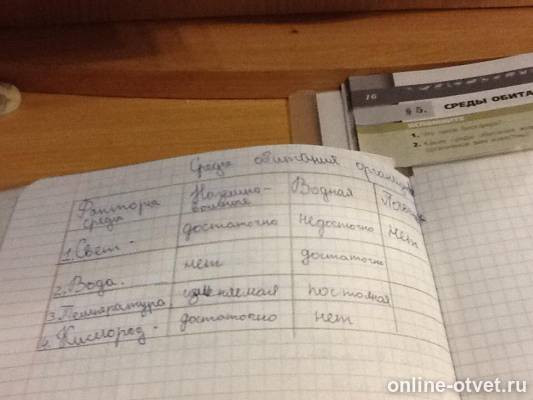 16
§ 5. СРЕДЫ ОБИТА
1. Что такое
2. Какие среды обитания
Среда обитания организмов
Факторы среды Наземно- Водная
1. Свет - достаточно недостаточно нет
2. Вода. нет достаточно
3. Температура изменяемая постоянная
4. Кислород - достаточно нет
online-otvet.ru